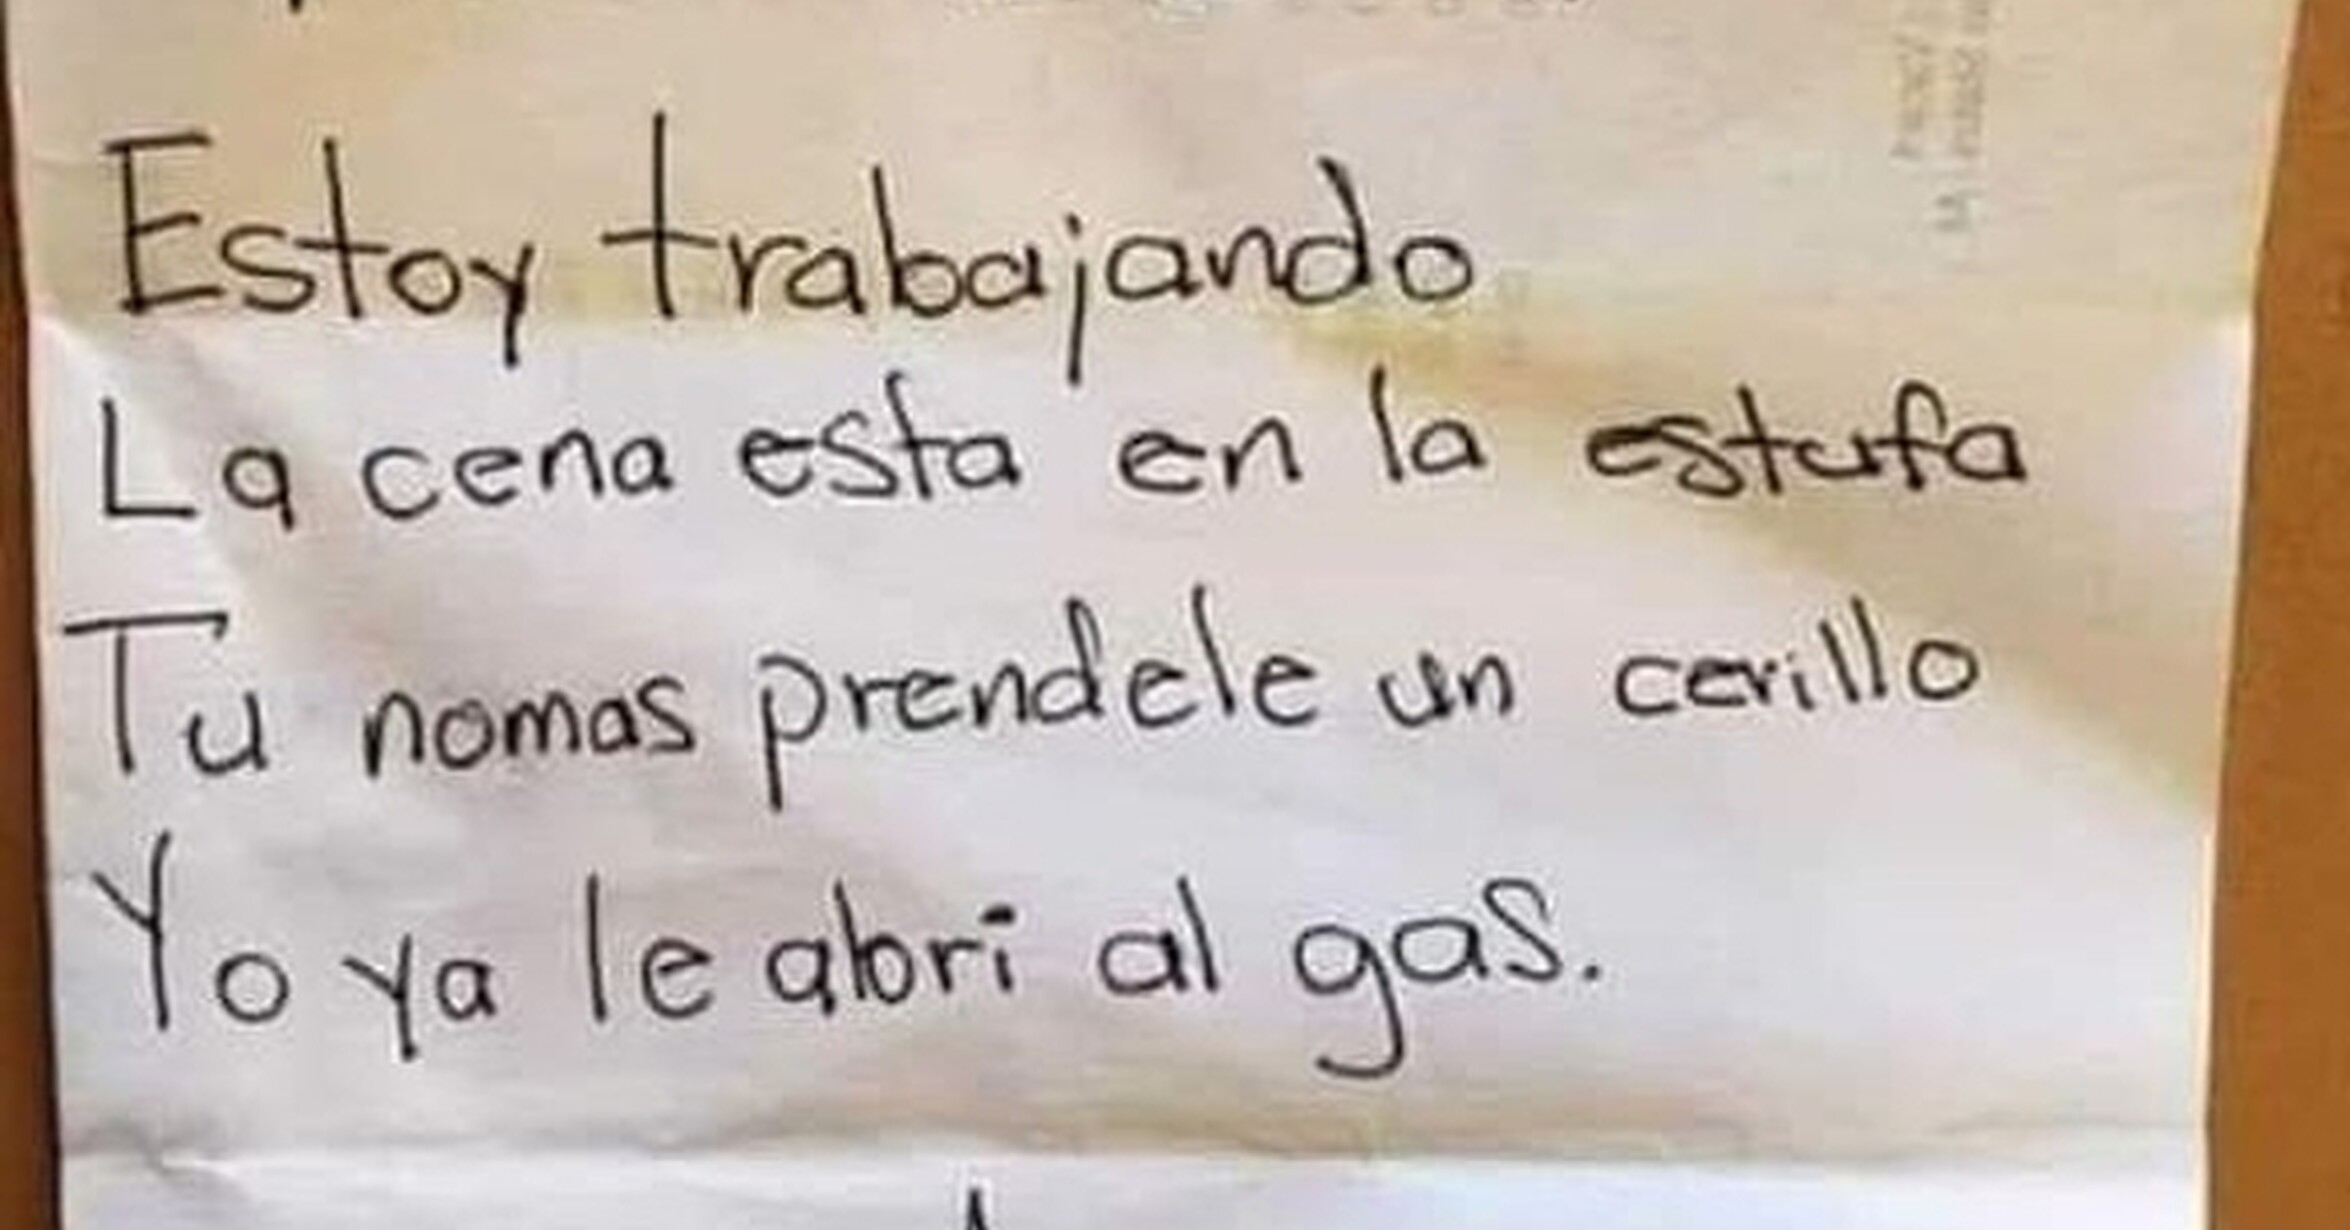 Estoy trabajando
La cena esta en la estufa
Tu nomas prendele un cerillo
Yo ya le abri al gas.